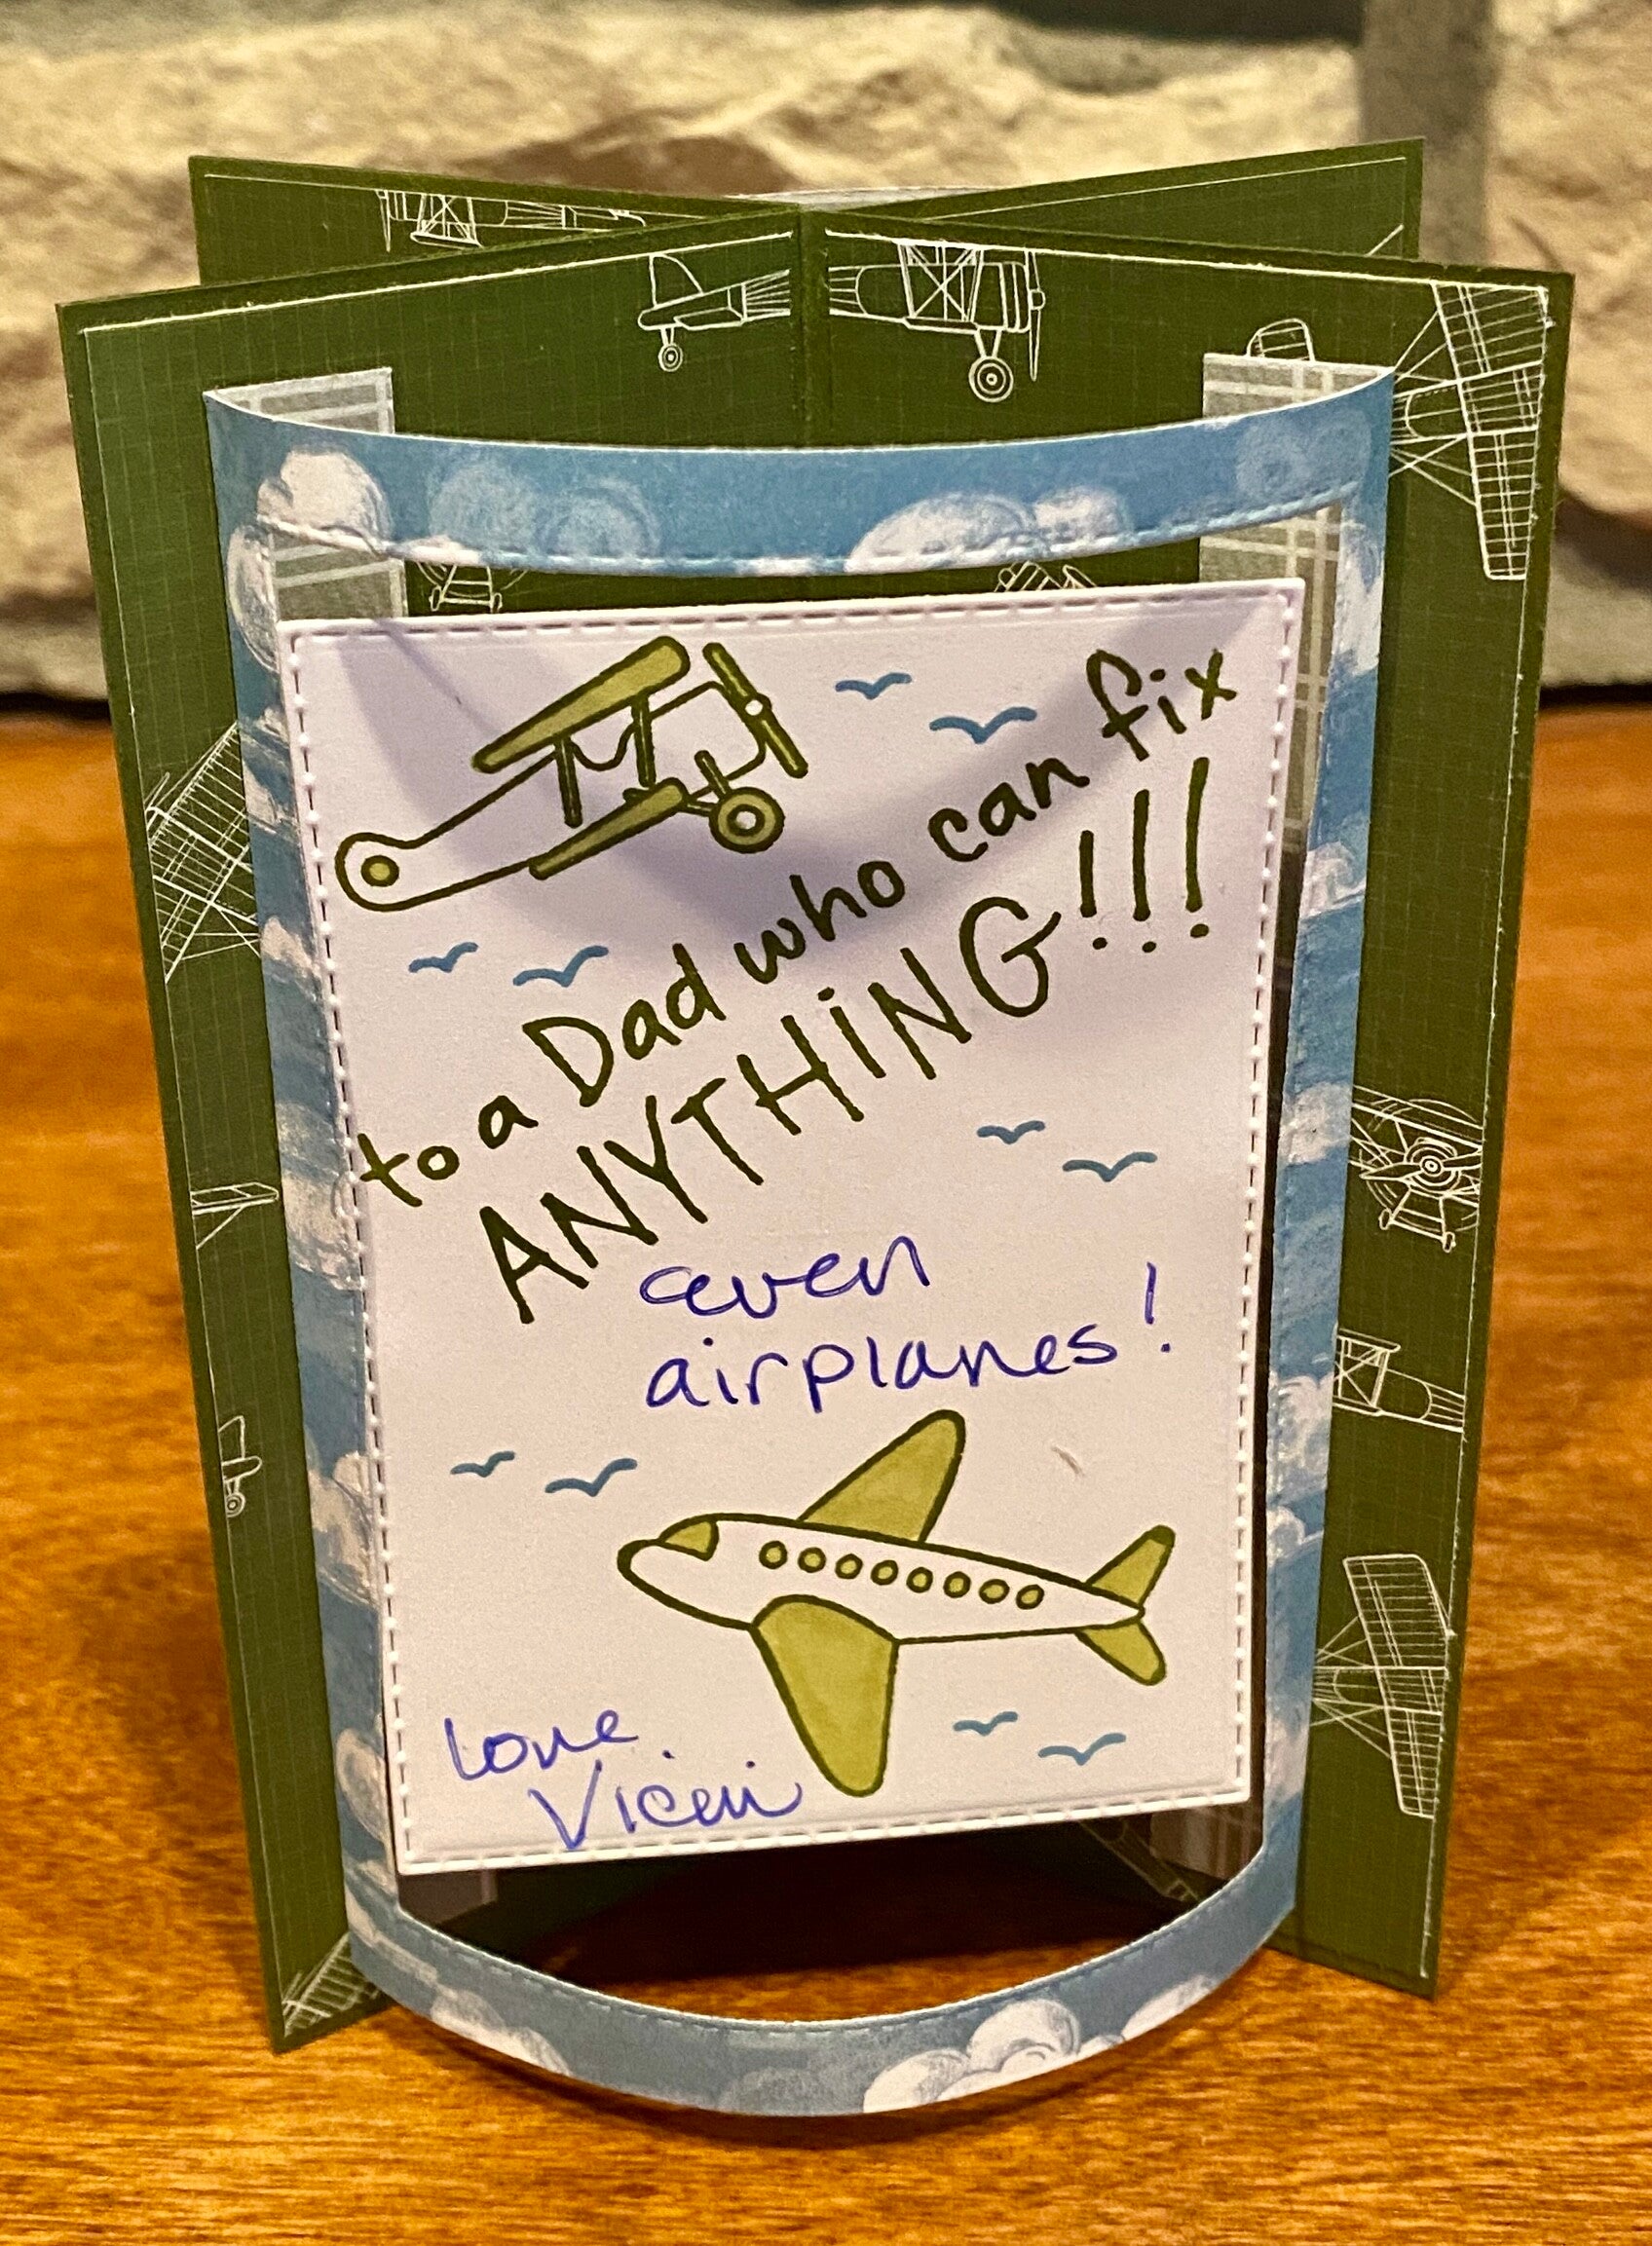 to a Dad who can fix
ANYTHiNG!!!
even
airplanes!
Love,
Vicki